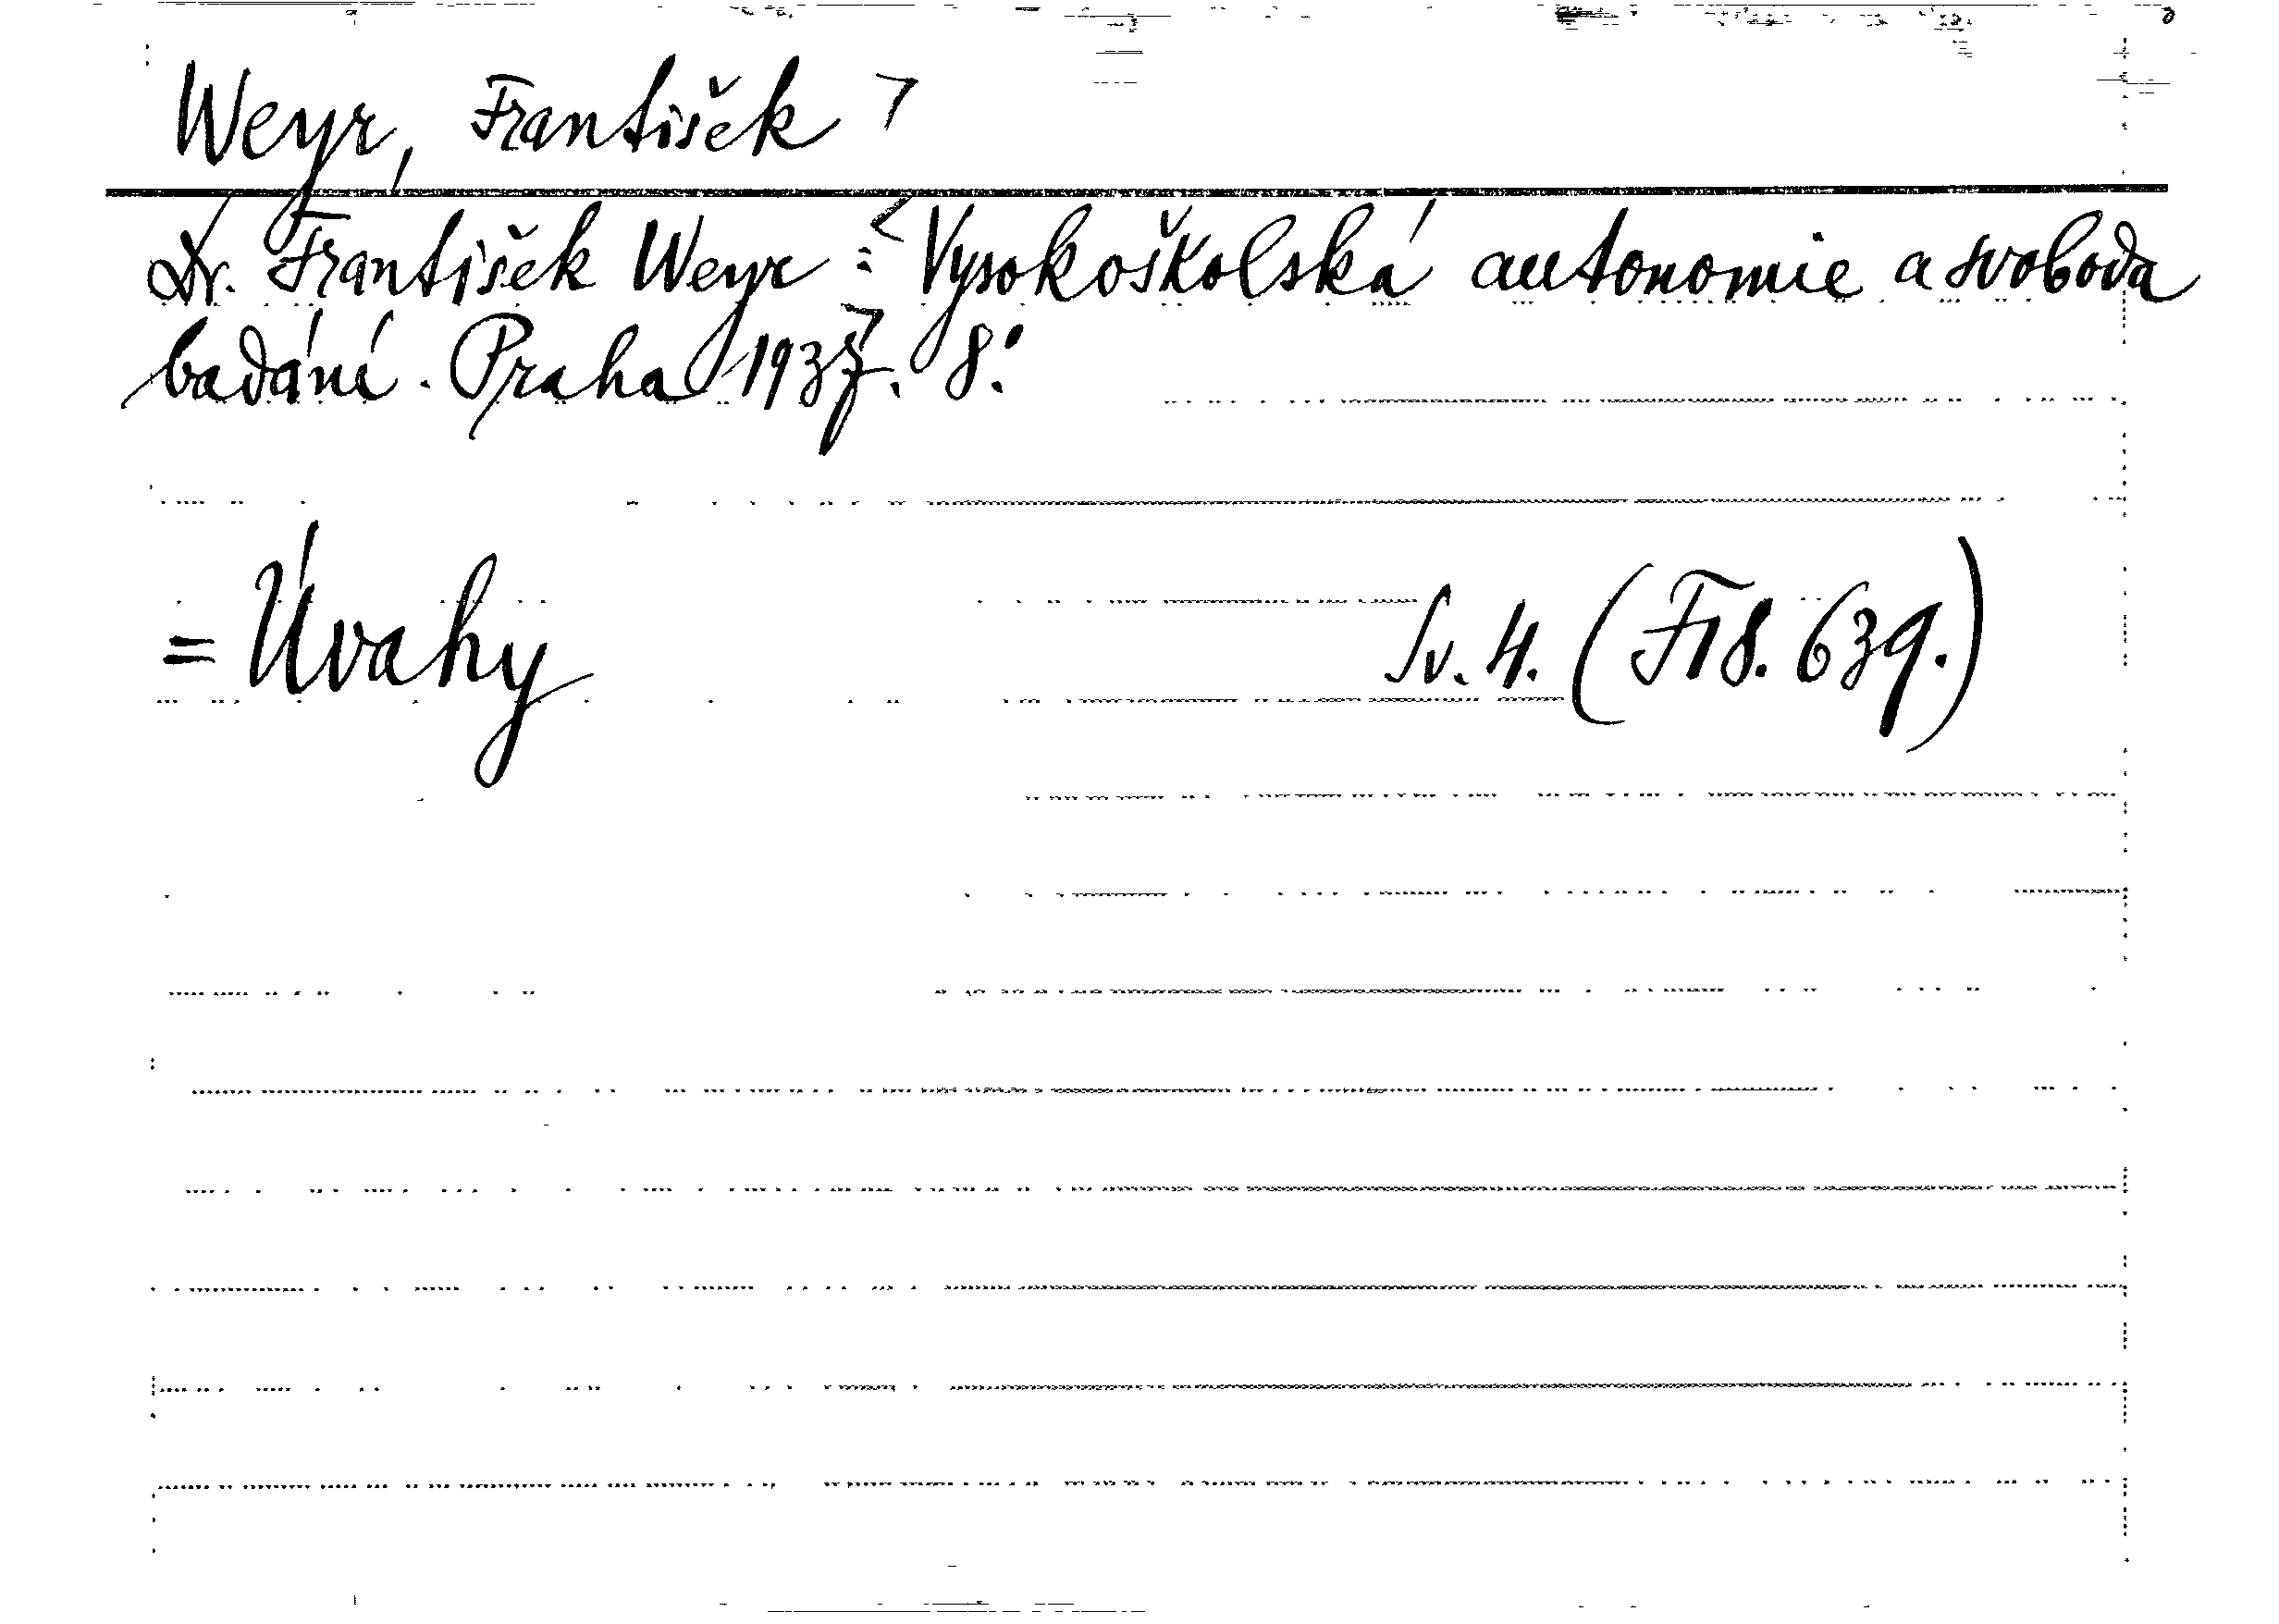 Weyr, František
Dr. František Weyr : Vysokoškolská autonomie a svoboda
badání. Praha 1937. 8°.
= Úvahy Sv. 4. (F18. 639.)